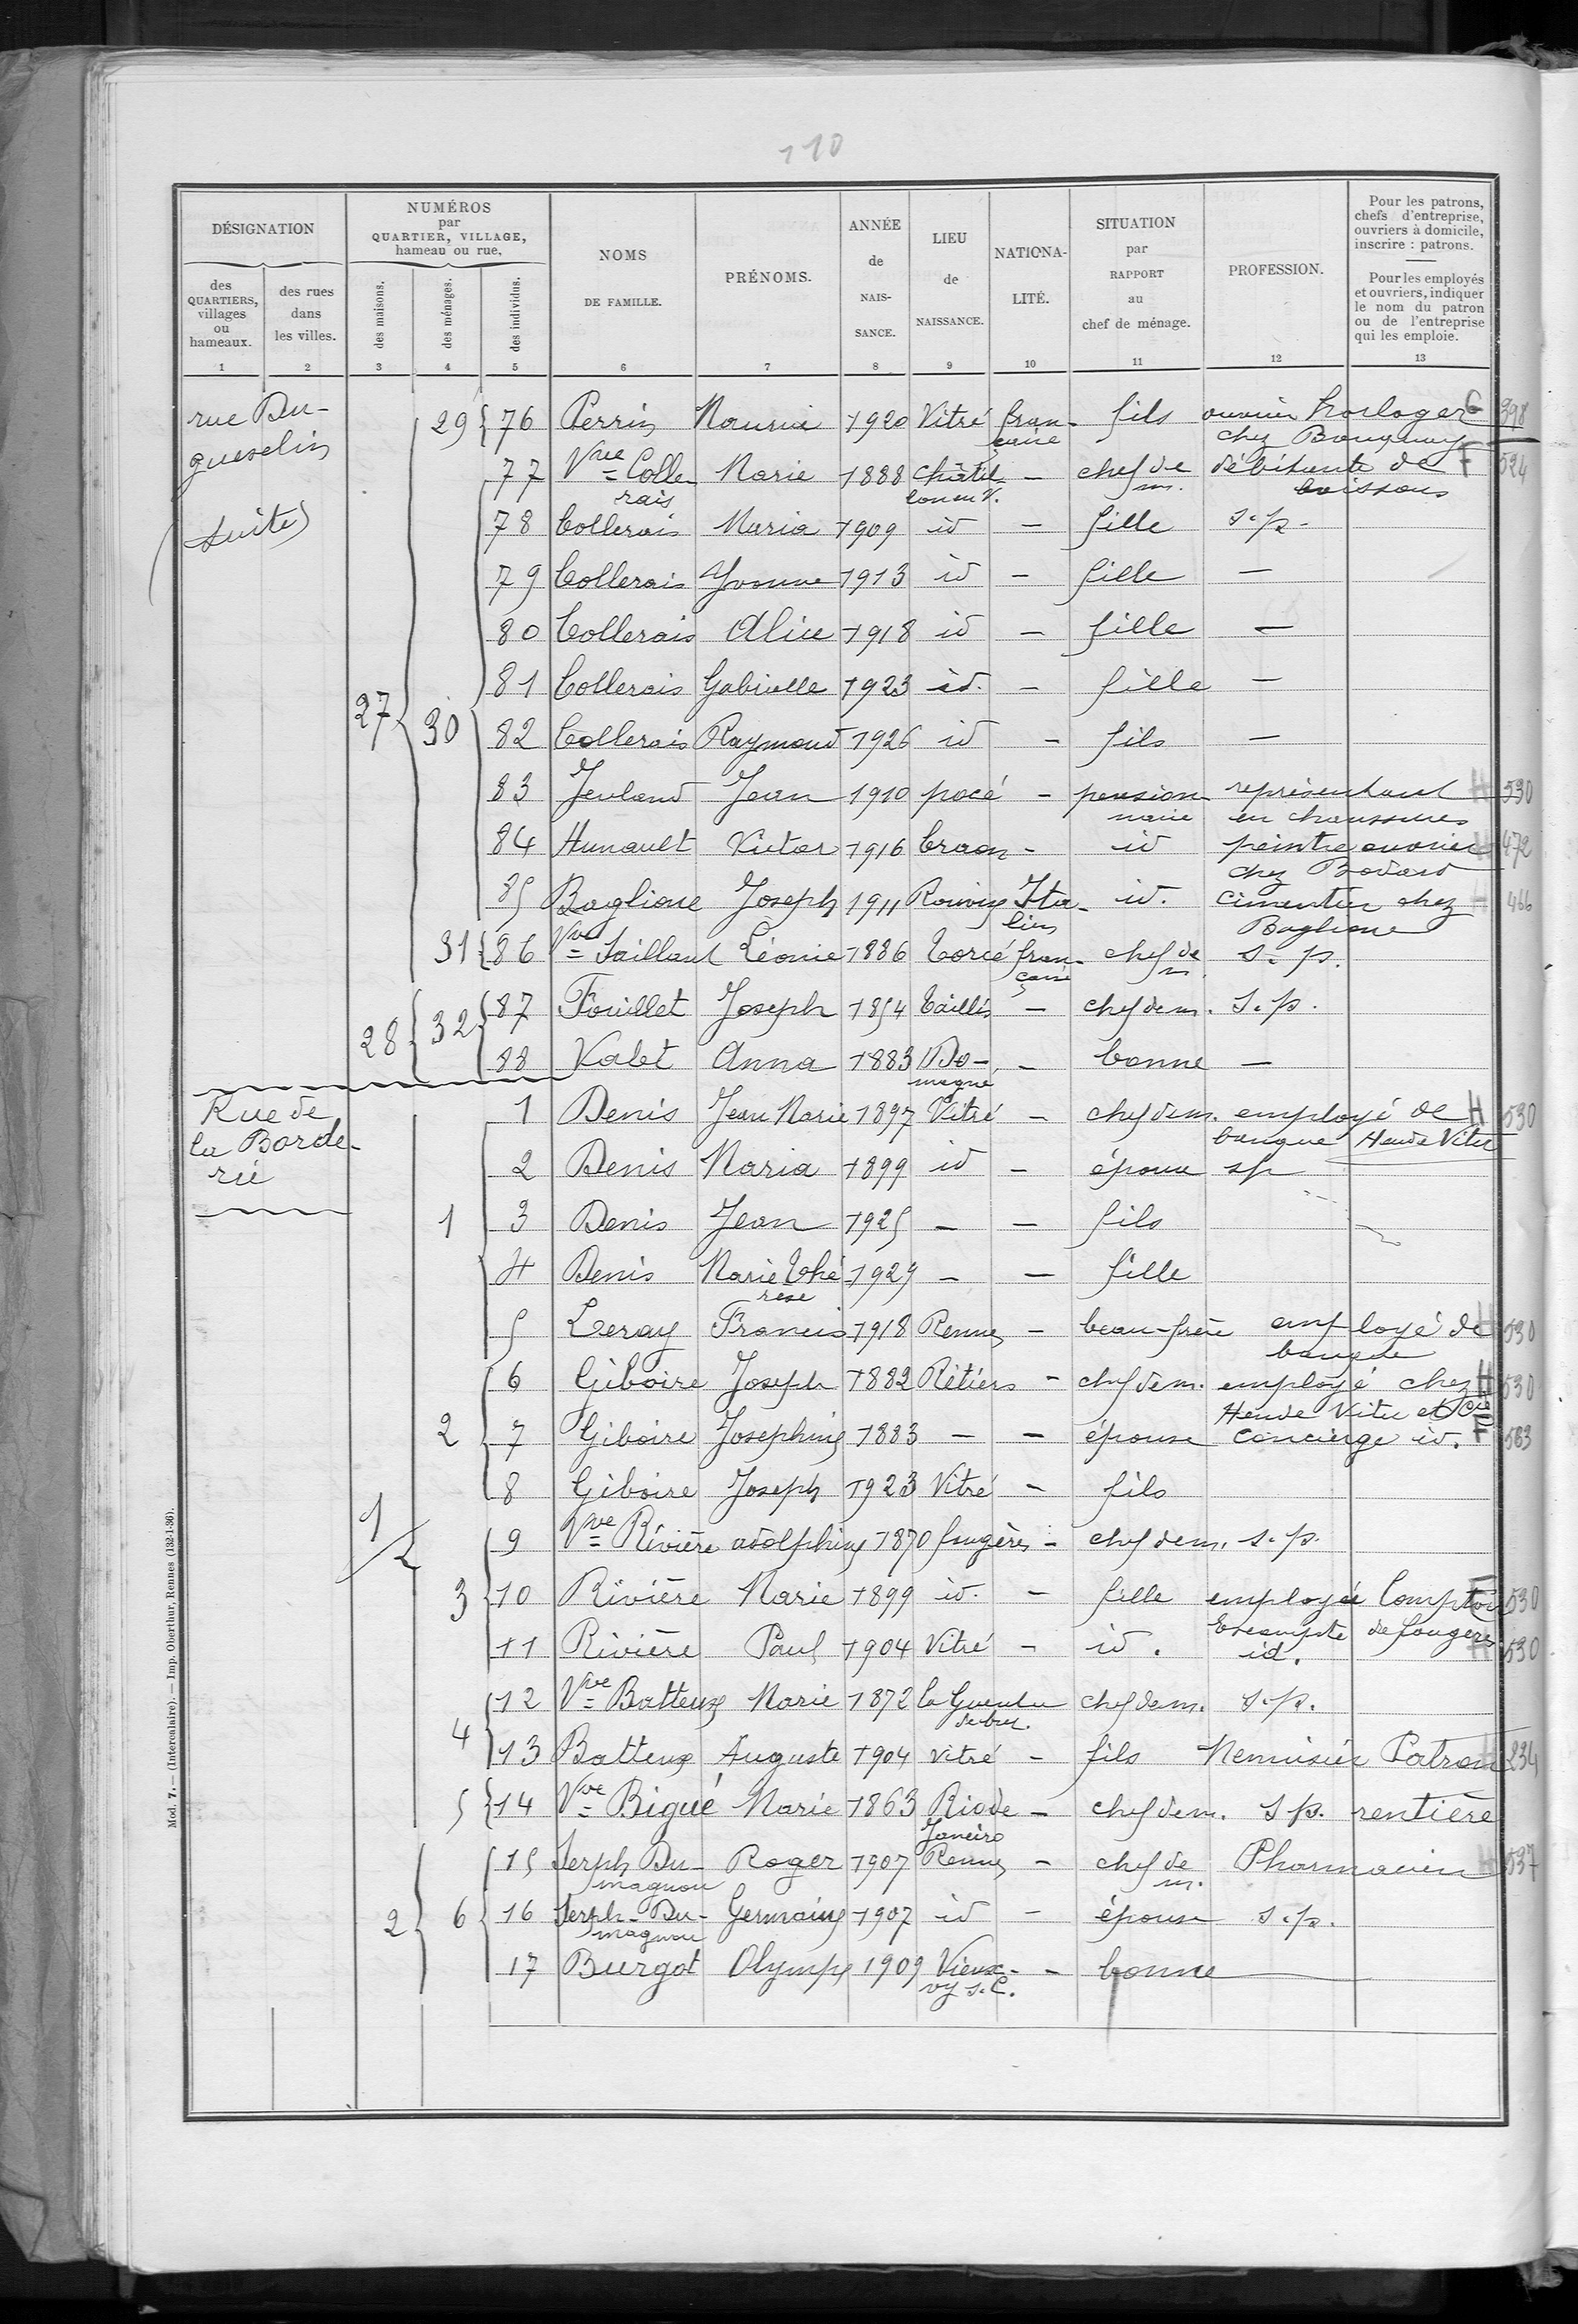 110
DÉSIGNATION
des QUARTIERS, villages ou hameaux.
des rues dans les villes.
NUMÉROS par QUARTIER, VILLAGE, hameau ou rue.
des maisons.
des ménages.
des individus.
NOMS DE FAMILLE.
PRÉNOMS.
ANNÉE de NAIS-SANCE.
LIEU de NAISSANCE.
NATIONA-LITÉ.
SITUATION par RAPPORT au chef de ménage.
PROFESSION.
Pour les patrons, chefs d'entreprise, ouvriers à domicile, inscrire : patrons.
Pour les employés et ouvriers, indiquer le nom du patron ou de l'entreprise qui les emploie.
1 2 3 4 5 6 7 8 9 10 11 12 13
rue Du-guesclin (suite)
27
29 76 Perrin Maurice 1920 Vitré française fils ouvrier horloger chez G 398
30
77 Vve Collerais Marie 1888 Châtillon en V. - chef de m. débitante de boissons F 524
78 Collerais Maria 1909 id - fille s.p.
79 Collerais Yvonne 1913 id - fille -
80 Collerais Alice 1918 id - fille -
81 Collerais Gabrielle 1923 id. - fille -
82 Collerais Raymond 1926 id - fils -
83 Jeuland Jean 1910 pocé - pensionnaire représentant en chaussures H 530
84 Hunault Victor 1916 Craon - id peintre ouvrier chez Bodard H 472
85 Baglione Joseph 1911 Italien id. cimentier chez Baglione H 466
31 86 Vve Saillant Léonie 1886 Torcé française chef de m s.p.
28 32 87 Fouillet Joseph 1854 Taillis - chef de m. s.p.
88 Valet Anna 1883 Domagné - bonne -
Rue de la Borderie
1/2
1
1 Denis Jean Marie 1897 Vitré - chef de m. employé de banque H 530
2 Denis Maria 1899 id - épouse sp
3 Denis Jean 1925 - - fils
4 Denis Marie Thérèse 1929 - - fille
5 Leray Francis 1918 Rennes - beau-frère employé de banque H 530
2
6 Giboire Joseph 1882 Rétiers - chef de m. employé chez H 530
7 Giboire Josephine 1883 - - épouse concierge id. F 583
8 Giboire Joseph 1923 Vitré - fils
3
9 Vve Rivière adolphine 1870 fougères - chef de m. s.p.
10 Rivière Marie 1899 id. - fille employée Comptoir Escompte de fougères F 530
11 Rivière Paul 1904 Vitré - id. id. H 530
4
12 Vve Batteux Marie 1872 la Guerche de bret. chef de m. s.p.
13 Batteux Auguste 1904 vitré - fils Menuisier Patron 234
5 14 Vve Bigué Marie 1863 Rio de Janeiro - chef de m. s p. rentière
2 6
15 Serph Dumagnou Roger 1907 Rennes - chef de m. Pharmacien H 537
16 Serph-Dumagnou Germaine 1907 id - épouse s.p.
17 Burgot Olympe 1909 Vieux-vy s. C. - bonne
Mod. 7. — (Intercalaire). — Imp. Oberthur, Rennes (132-1-36).